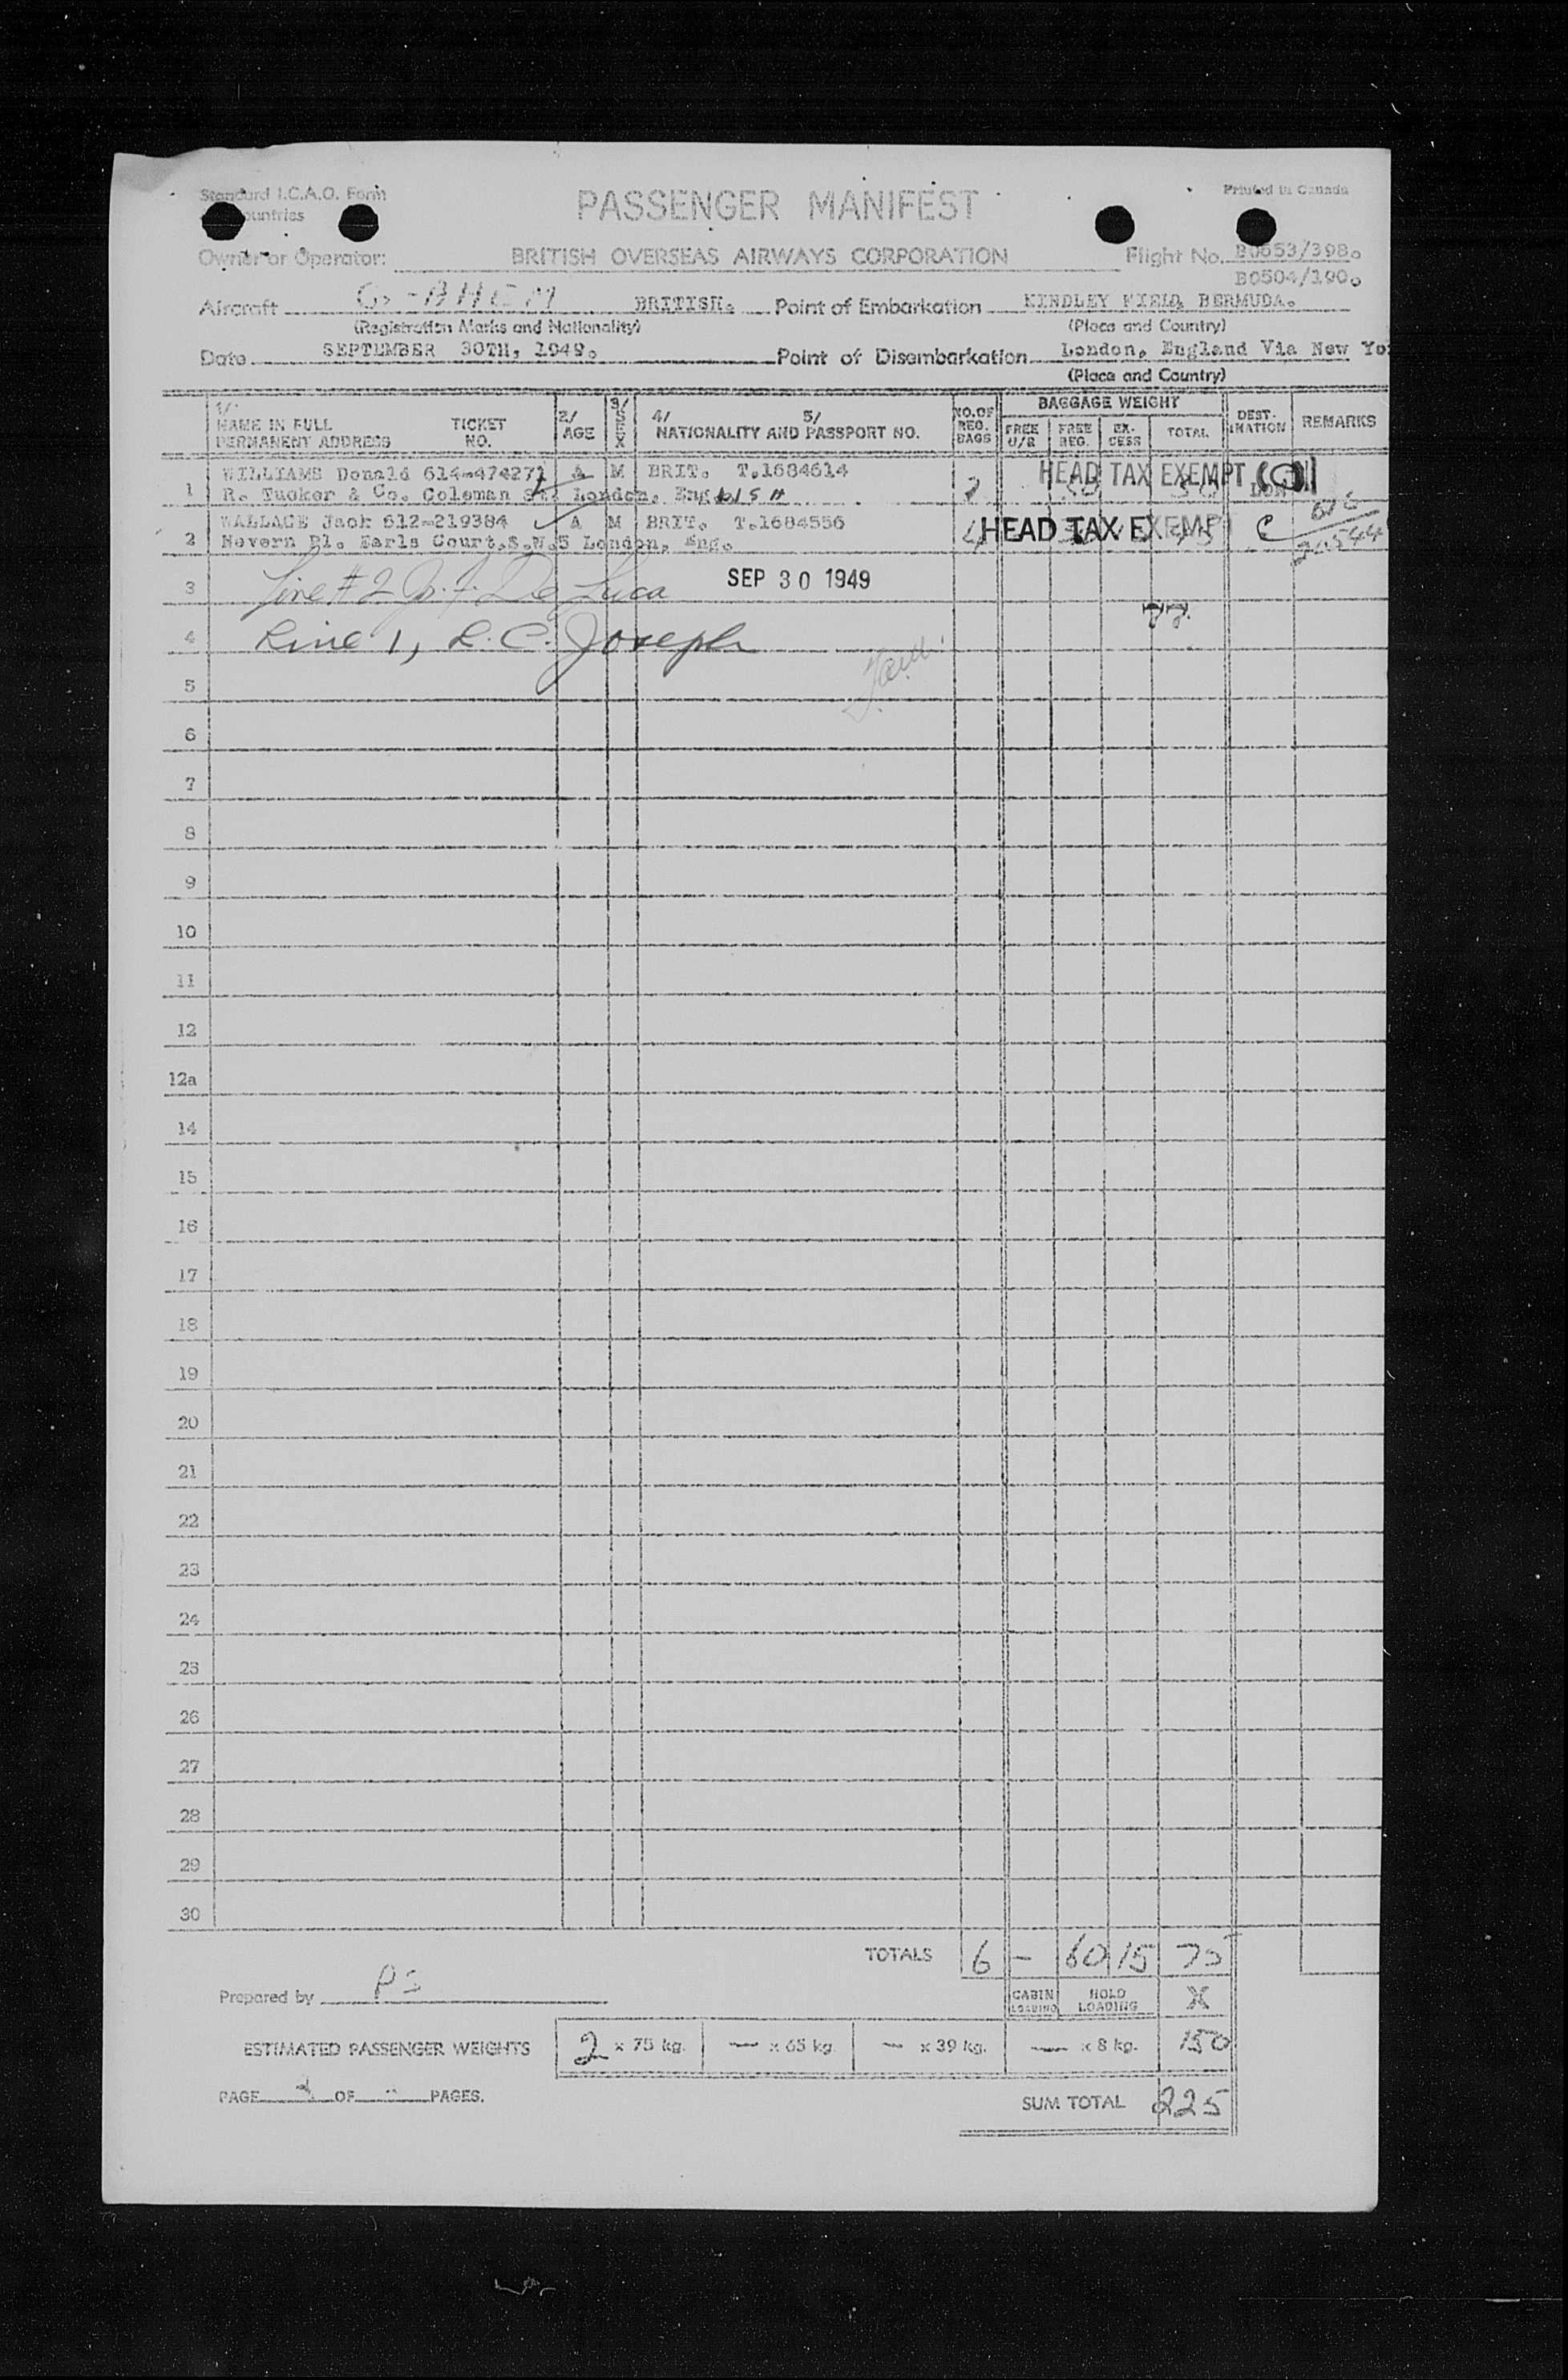 Standard I.C.A.O. Form
PASSENGER MANIFEST
Printed in Canada
ountries
Owner or Operator: BRITISH OVERSEAS AIRWAYS CORPORATION Flight No. B0653/398.
B0504/190.
Aircraft BRITISH. Point of Embarkation KINDLEY FIELD, BERMUDA.
(Registration Marks and Nationality) (Place and Country)
Date SEPTEMBER 30TH, 1949. Point of Disembarkation London, England Via New Yo
(Place and Country)
1/ NAME IN FULL PERMANENT ADDRESS TICKET NO. 2/ AGE 3/ SEX 4/ 5/ NATIONALITY AND PASSPORT NO. NO. OF REG. BAGS BAGGAGE WEIGHT FREE U/S FREE REG. EX-CESS TOTAL DEST-INATION REMARKS
1 WILLIAMS Donald 614-474271 A M BRIT. T.1684614 2 HEAD TAX EXEMPT
R. Tucker & Co. Coleman St. London, Eng.
2 WALLACE Jack 612-219384 A M BRIT. T.1684556 4 HEAD TAX EXEMPT C
Nevern Pl. Earls Court.S.W.5 London, Eng.
3 Line #2 De Luca SEP 30 1949
4 Line 1, R. C. Joseph
5
6
7
8
9
10
11
12
12a
14
15
16
17
18
19
20
21
22
23
24
25
26
27
28
29
30
TOTALS 6 - 60 15 75
Prepared by PS
CABIN LOADING HOLD LOADING X
ESTIMATED PASSENGER WEIGHTS 2 x 75 kg. — x 65 kg. — x 39 kg. — x 8 kg. 150
PAGE OF PAGES.
SUM TOTAL 225